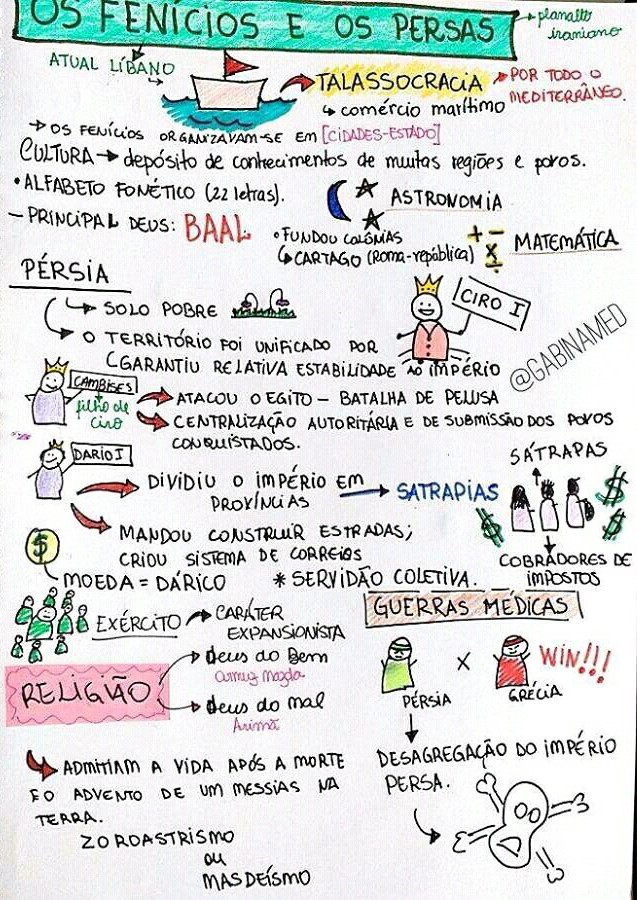 OS FENÍCIOS E OS PERSAS
planalto
iraniano
ATUAL LÍBANO
TALASSOCRACIA
POR TODO O
MEDITERRÂNEO.
comércio marítimo
OS FENÍCIOS ORGANIZAVAM-SE EM [CIDADES-ESTADO]
CULTURA → depósito de conhecimentos de muitas regiões e povos.
• ALFABETO FONÉTICO (22 letras).
ASTRONOMIA
- PRINCIPAL DEUS: BAAL
• FUNDOU COLÔNIAS
CARTAGO (Roma-república)
+ -
× ÷
MATEMÁTICA
PÉRSIA
SOLO POBRE
CIRO I
O TERRITÓRIO FOI UNIFICADO POR
GARANTIU RELATIVA ESTABILIDADE AO IMPÉRIO
@GABINAMED
CAMBISES
filho de
ciro
ATACOU O EGITO - BATALHA DE PELUSA
CENTRALIZAÇÃO AUTORITÁRIA E DE SUBMISSÃO DOS POVOS
CONQUISTADOS.
DARIO I
DIVIDIU O IMPÉRIO EM
PROVÍNCIAS
SATRAPIAS
SÁTRAPAS
$ $ $
COBRADORES DE
IMPOSTOS
MANDOU CONSTRUIR ESTRADAS;
CRIOU SISTEMA DE CORREIOS
$
MOEDA = DÁRICO
* SERVIDÃO COLETIVA.
EXÉRCITO → CARÁTER
EXPANSIONISTA
RELIGIÃO
deus do Bem
Ormuz Mazda
deus do mal
Arimã
ADMITIAM A VIDA APÓS A MORTE
E O ADVENTO DE UM MESSIAS NA
TERRA.
ZOROASTRISMO
ou
MASDEÍSMO
GUERRAS MÉDICAS
X
WIN!!!
PÉRSIA
GRÉCIA
DESAGREGAÇÃO DO IMPÉRIO
PERSA.